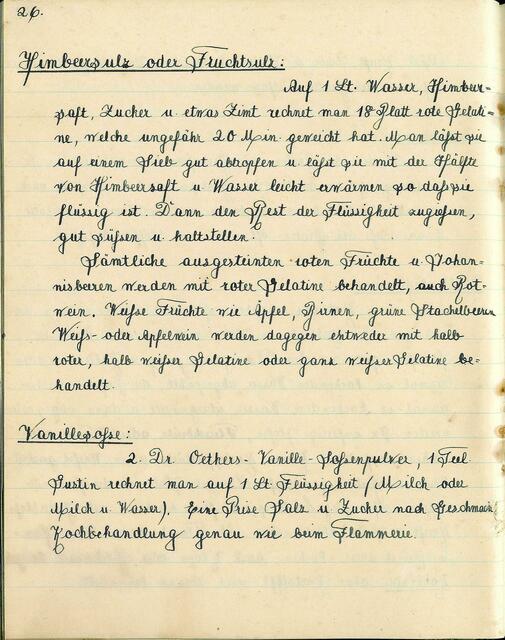 26.
Himbeersulz oder Fruchtsulz:
Auf 1 Lt. Wasser, Himbeer-
saft, Zucker u. etwas Zimt rechnet man 18 Blatt rote Gelati-
ne, welche ungefähr 20 Min. geweicht hat. Man läßt sie
auf einem Sieb gut abtropfen u. läßt sie mit der Hälfte
von Himbeersaft u. Wasser leicht erwärmen so daß sie
flüssig ist. Dann den Rest der Flüssigkeit zugießen,
gut süßen u. kaltstellen.
Sämtliche ausgesteinten roten Früchte u. Johan-
nisbeeren werden mit roter Gelatine behandelt, auch Rot-
wein. Weiße Früchte wie Äpfel, Birnen, grüne Stachelbeeren
Weiß- oder Apfelwein werden dagegen entweder mit halb
roter, halb weißer Gelatine oder ganz weißer Gelatine be-
handelt.
Vanillesoße:
2. Dr. Oethers- Vanille- Soßenpulver, 1 Teel.
Gustin rechnet man auf 1 Lt. Flüssigkeit (Milch oder
Milch u. Wasser). Eine Prise Salz u. Zucker nach Geschmack
Kochbehandlung genau wie beim Flammerie.